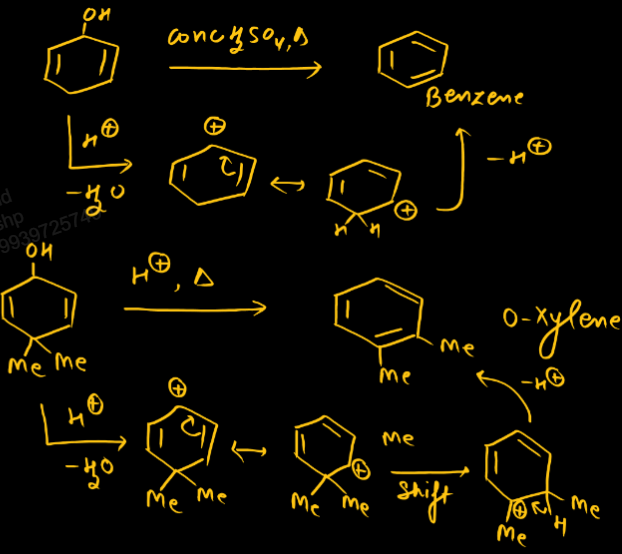 OH
conc H2SO4, Δ
Benzene
H⊕
-H2O
⊕
⊕
H H
-H⊕
9939725745
OH
H⊕, Δ
Me Me
O-Xylene
Me
Me
-H⊕
H⊕
-H2O
⊕
Me Me
⊕
Me Me
Me
Shift
⊕
H
Me
Me